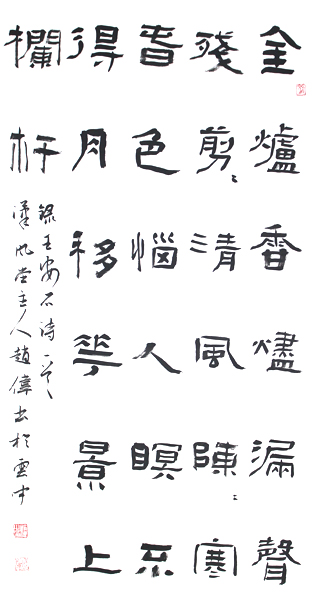 金爐香燼漏聲
殘剪〻清風陣〻寒
春色惱人眠不
得月移花景上
欄杆
錄王安石詩一首
漢風堂主人趙偉書於雲中